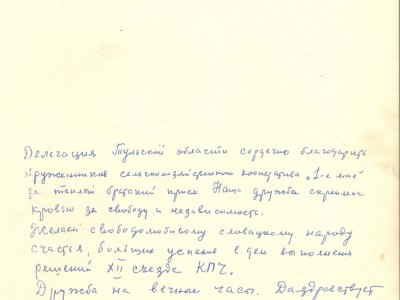 Делегация Тульской области сердечно благодарит
тружеников сельскохозяйственного кооператива „1-е мая“
за теплый братский прием. Наша дружба скреплена
кровью за свободу и независимость.
Желаем свободолюбивому словацкому народу
счастья, больших успехов в деле выполнения
решений XII съезда КПЧ.
Дружба на вечные часы. Да здравствует